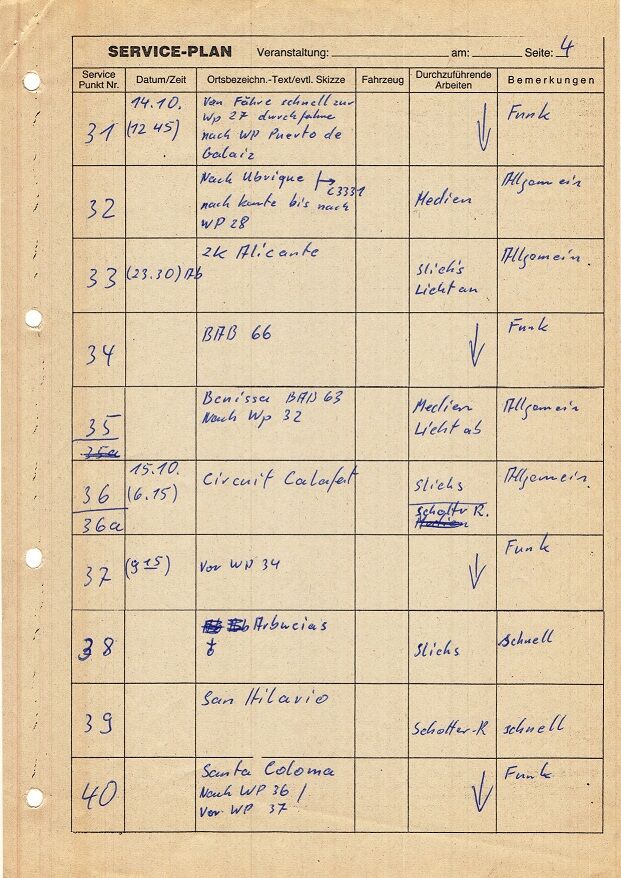 SERVICE-PLAN Veranstaltung: am: Seite: 4
Service Punkt Nr. Datum/Zeit Ortsbezeichn.-Text/evtl. Skizze Fahrzeug Durchzuführende Arbeiten Bemerkungen
31 14.10. (12 45) Von Fähre schnell zur Funk
Wp 27 durchfahre
nach WP Puerto de
Galaiz
32 Nach Ubrique C3331 Medien Allgemein
nach kante bis nach
WP 28
33 (23.30) Ab ZK Alicante Slicks Allgemein.
Licht an
34 BAB 66 Funk
35 Benissa BAB 63 Medien Allgemein
Nach Wp 32 Licht ab
35a
36 15.10. (6.15) Circuit Calafat Slicks Allgemein.
36a Schotter R.
37 (9 15) Vor WP 34 Funk
38 Arbucias Slicks schnell
39 San Hilario Schotter-R schnell
40 Santa Coloma Funk
Nach WP 36 /
Vor WP 37